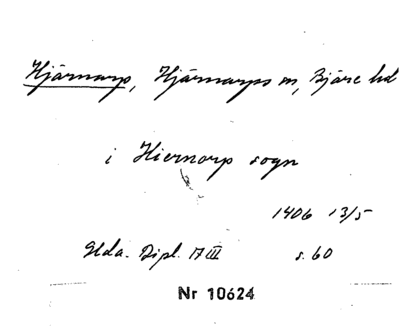 Hjärnarp, Hjärnarps sn, Bjäre hd
i Hiernarp sogn
1406 13/5
Æda. Dipl. 17 III s. 60
Nr 10624